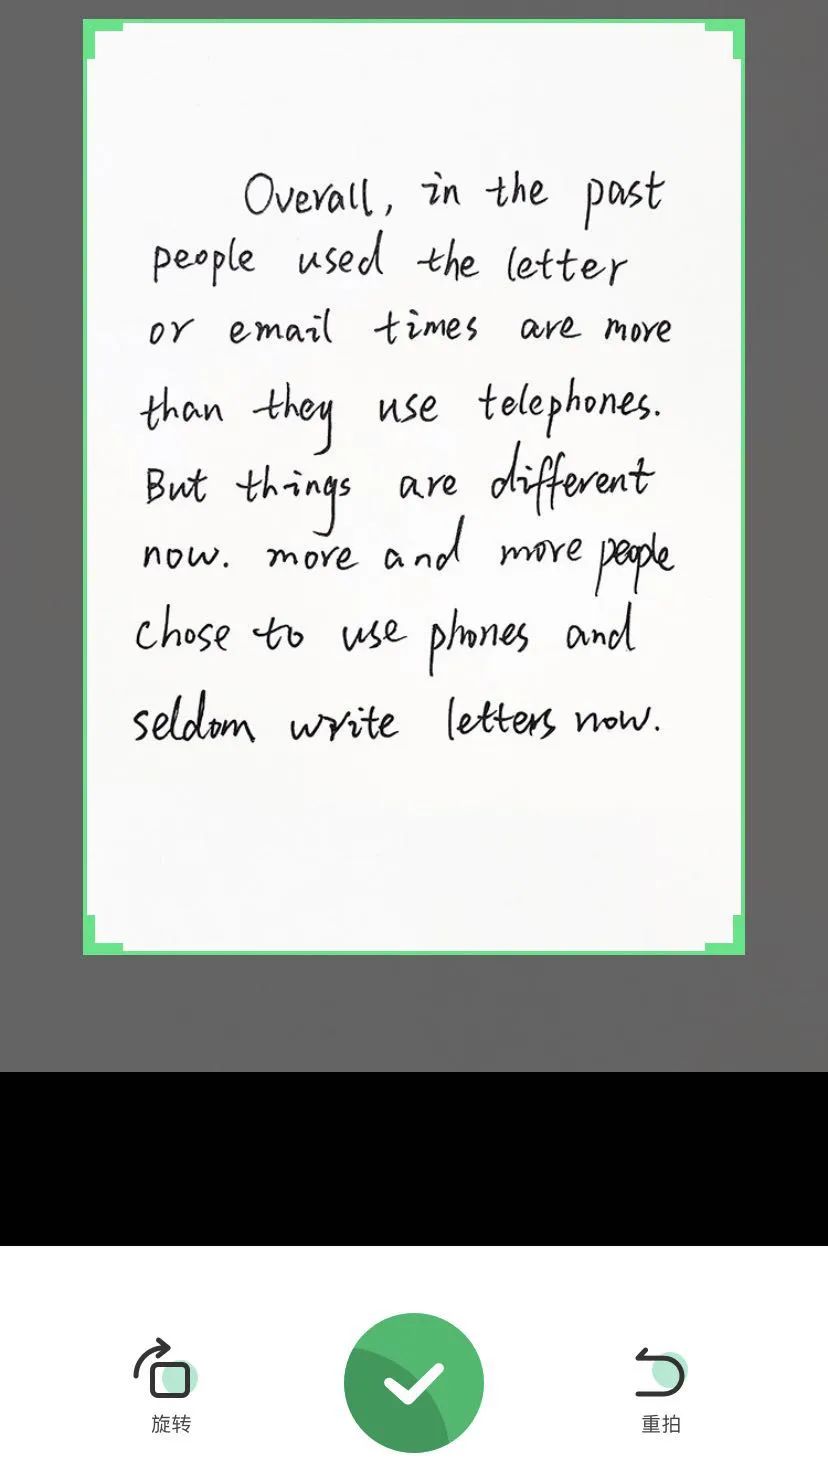 Overall, in the past
people used the letter
or email times are more
than they use telephones.
But things are different
now. more and more people
chose to use phones and
seldom write letters now.
旋转
重拍